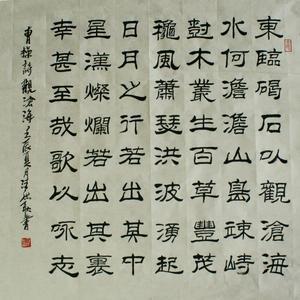 東臨碣石以觀滄海
水何澹澹山島竦峙
樹木叢生百草豐茂
穐風蕭瑟洪波湧起
日月之行若出其中
星漢燦爛若出其裏
幸甚至哉歌以咏志
曹操詩觀滄海壬辰夏月
書